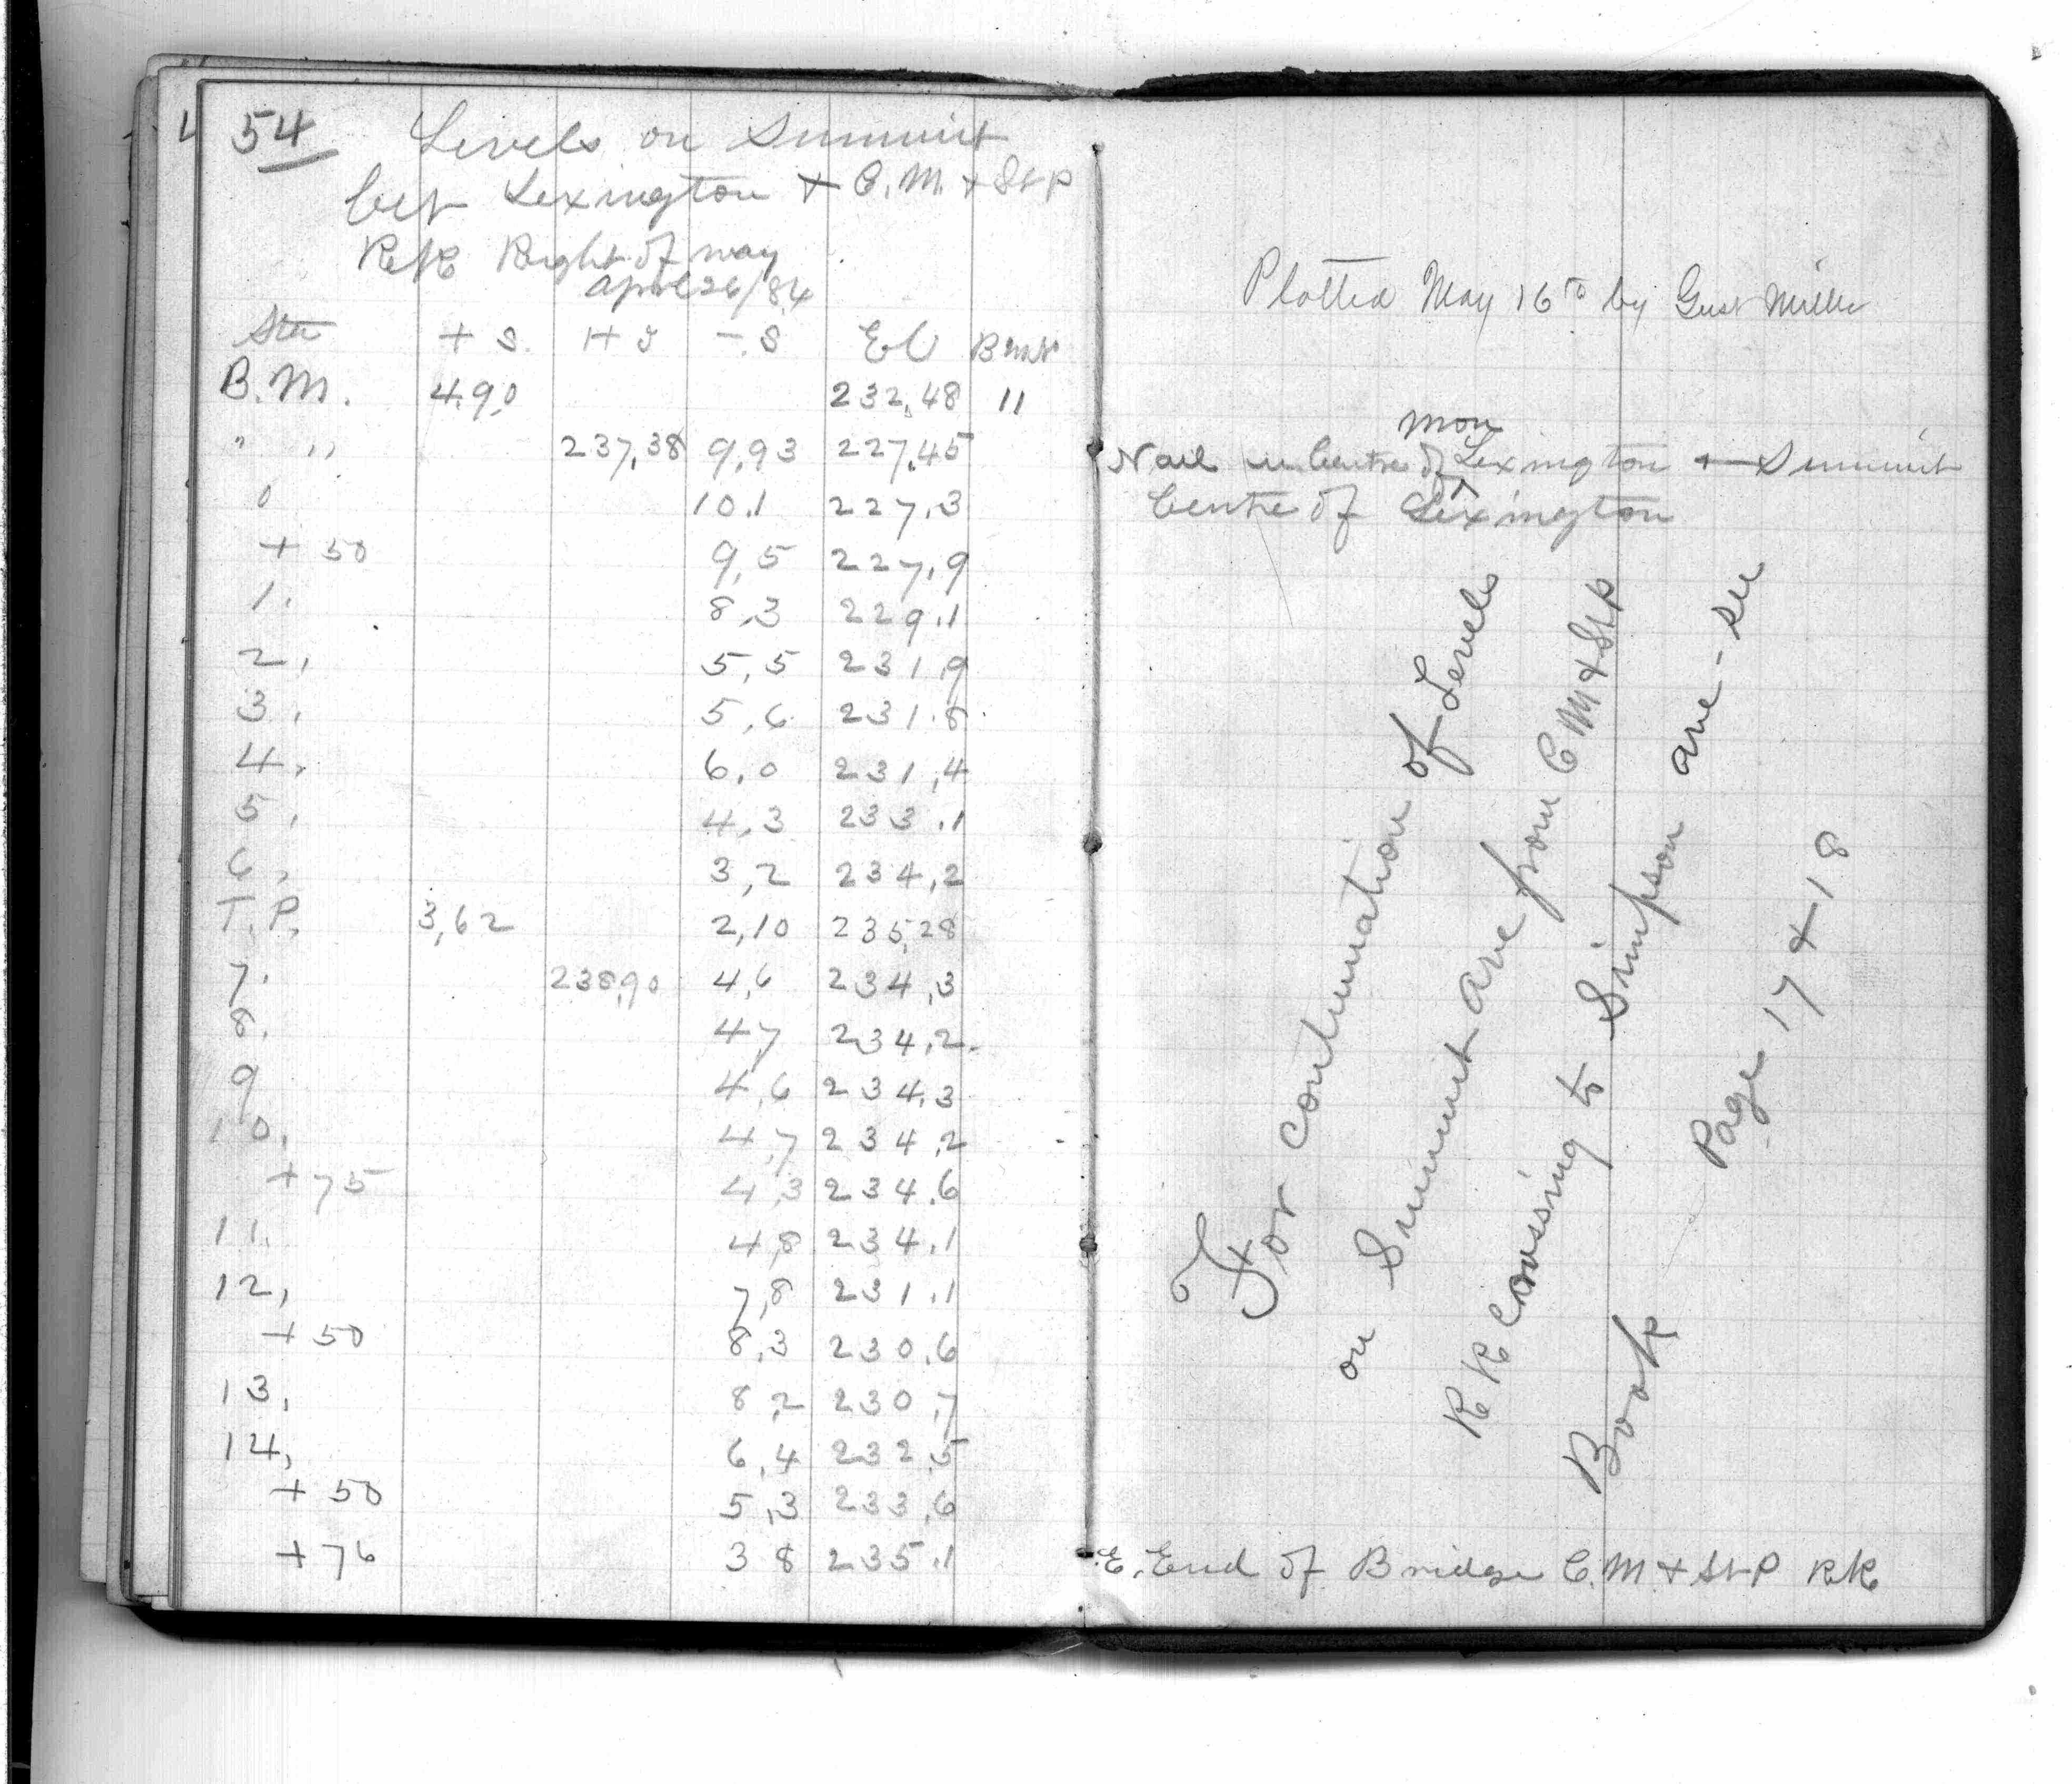 54 Levels on Summit
bet Lexington + C. M. + St P
RR Right of way
April 26/84
Sta + S. H I - S El Bmk
B.M. 4.90 232,48 11
" " 237,38 9,93 227,45 Nail in Centre of mon Lexington + Summit
0 10.1 227,3 Centre of Lexington
+ 50 9,5 227,9
1. 8,3 229.1
2, 5,5 231,9
3. 5,6 231.8
4, 6,0 231,4
5, 4,3 233.1
6, 3,2 234,2
T.P. 3,62 2,10 235,28
7. 238,90 4,6 234,3
8. 4,7 234,2
9 4,6 234,3
10. 4,7 234,2
+ 75 4,3 234.6
11. 4,8 234.1
12, 7,8 231.1
+ 50 8,3 230.6
13, 8,2 230,7
14, 6,4 232,5
+ 50 5,3 233,6
+ 76 3 8 235.1 E. End of Bridge C. M + St P RR
Plotted May 16th by Gust Miller
For Continuation of Levels
on Summit ave from C M & St P
RR Crossing to Simpson ave - see
Book Page 17 & 18